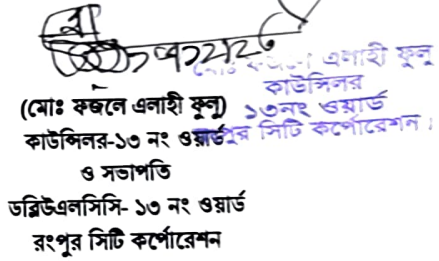 এলাহী ফুলু
কাউন্সিলর
১৩নং ওয়ার্ড
সিটি কর্পোরেশন।
(মোঃ ফজলে এলাহী ফুলু)
কাউন্সিলর-১৩ নং ওয়ার্ড
ও সভাপতি
ডব্লিউএলসিসি- ১৩ নং ওয়ার্ড
রংপুর সিটি কর্পোরেশন